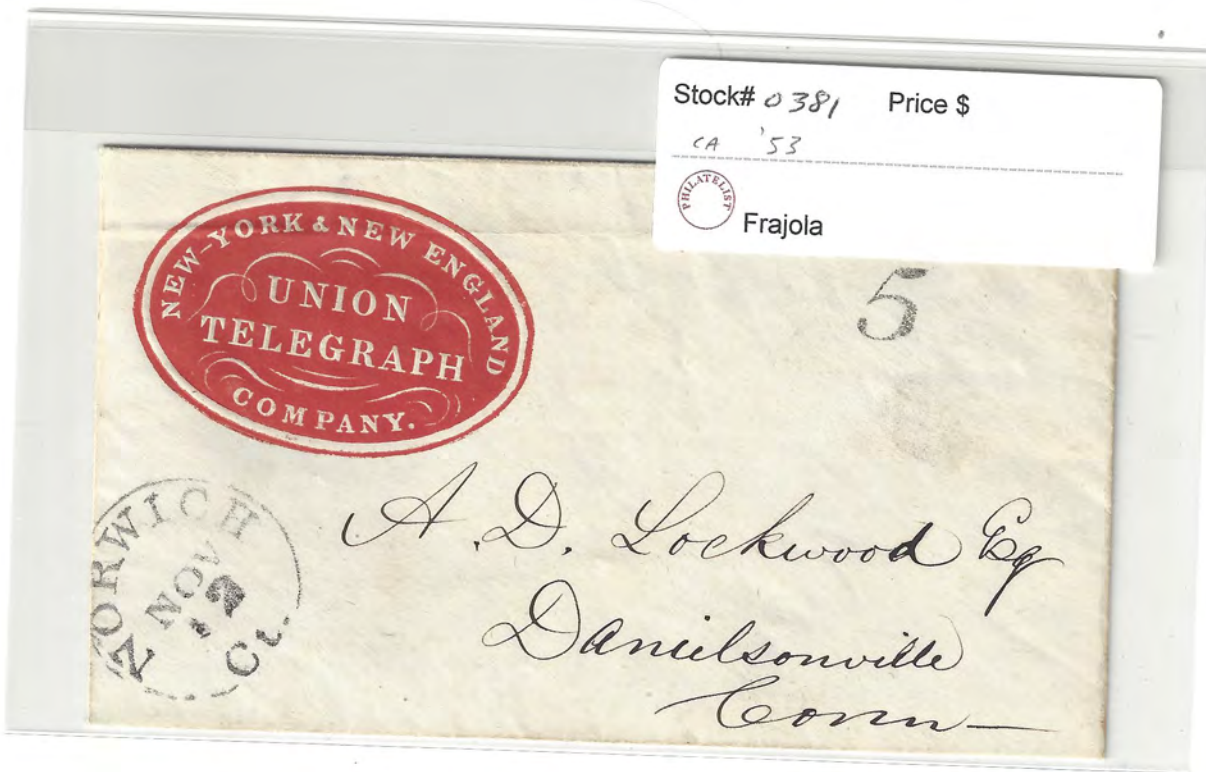 Stock# 0381 Price $
CA '53
PHILATELIST
Frajola
NEW-YORK & NEW ENGLAND
UNION
TELEGRAPH
COMPANY.
5
NORWICH Ct.
NOV
12
A. D. Lockwood Esq
Danielsonville
Conn